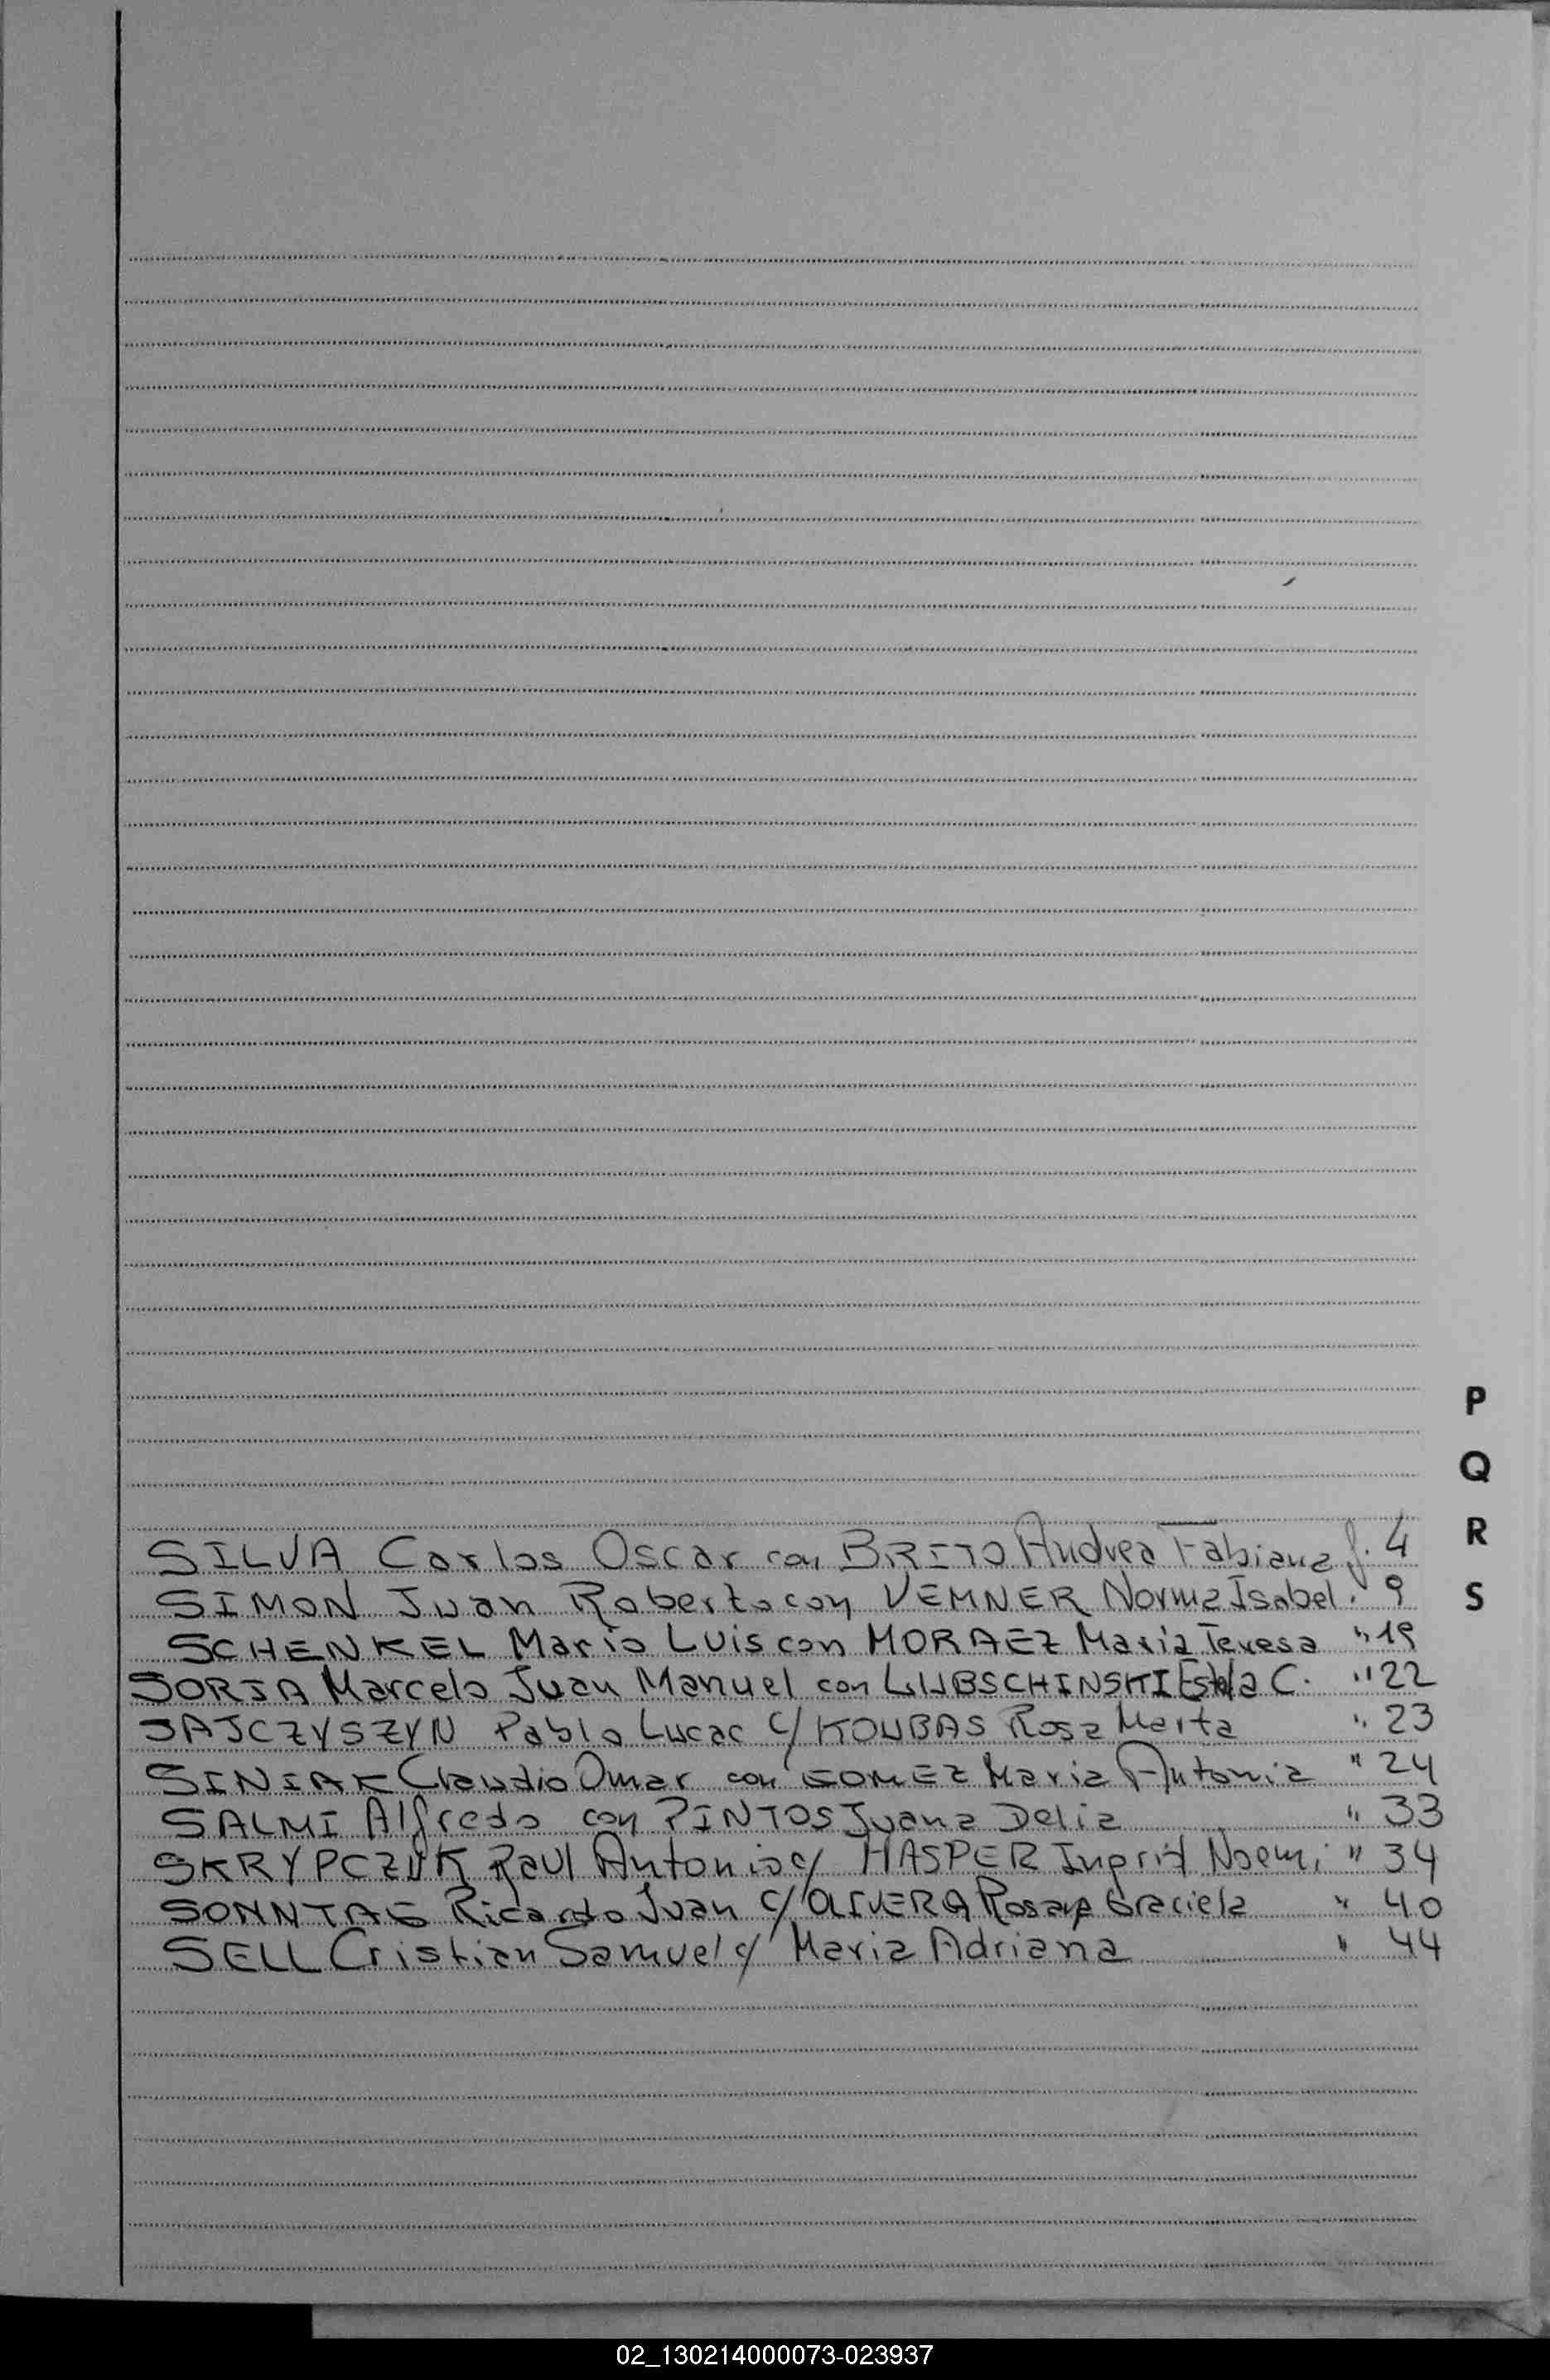 P
Q
R
S
SILVA Carlos Oscar con BRITO Andrea Fabiana f. 4
SIMON Juan Roberto con VEMNER Norma Isabel " 9
SCHENKEL Mario Luis con MORAEZ Maria Teresa " 19
SORIA Marcelo Juan Manuel con LUBSCHINSKI Estela C. " 22
SAJCZYSZYN Pablo Lucac c/ KOUBAS Rosa Marta " 23
SINIAK Claudio Omar con GOMEZ Maria Antonia " 24
SALMI Alfredo con PINTOS Juana Delia " 33
SKRYPCZUK Raul Antonio c/ HASPER Ingrit Noemi " 34
SONNTAG Ricardo Juan c/ OLIVERA Graciela " 40
SELL Cristian Samuel c/ Maria Adriana " 44
02_130214000073-023937